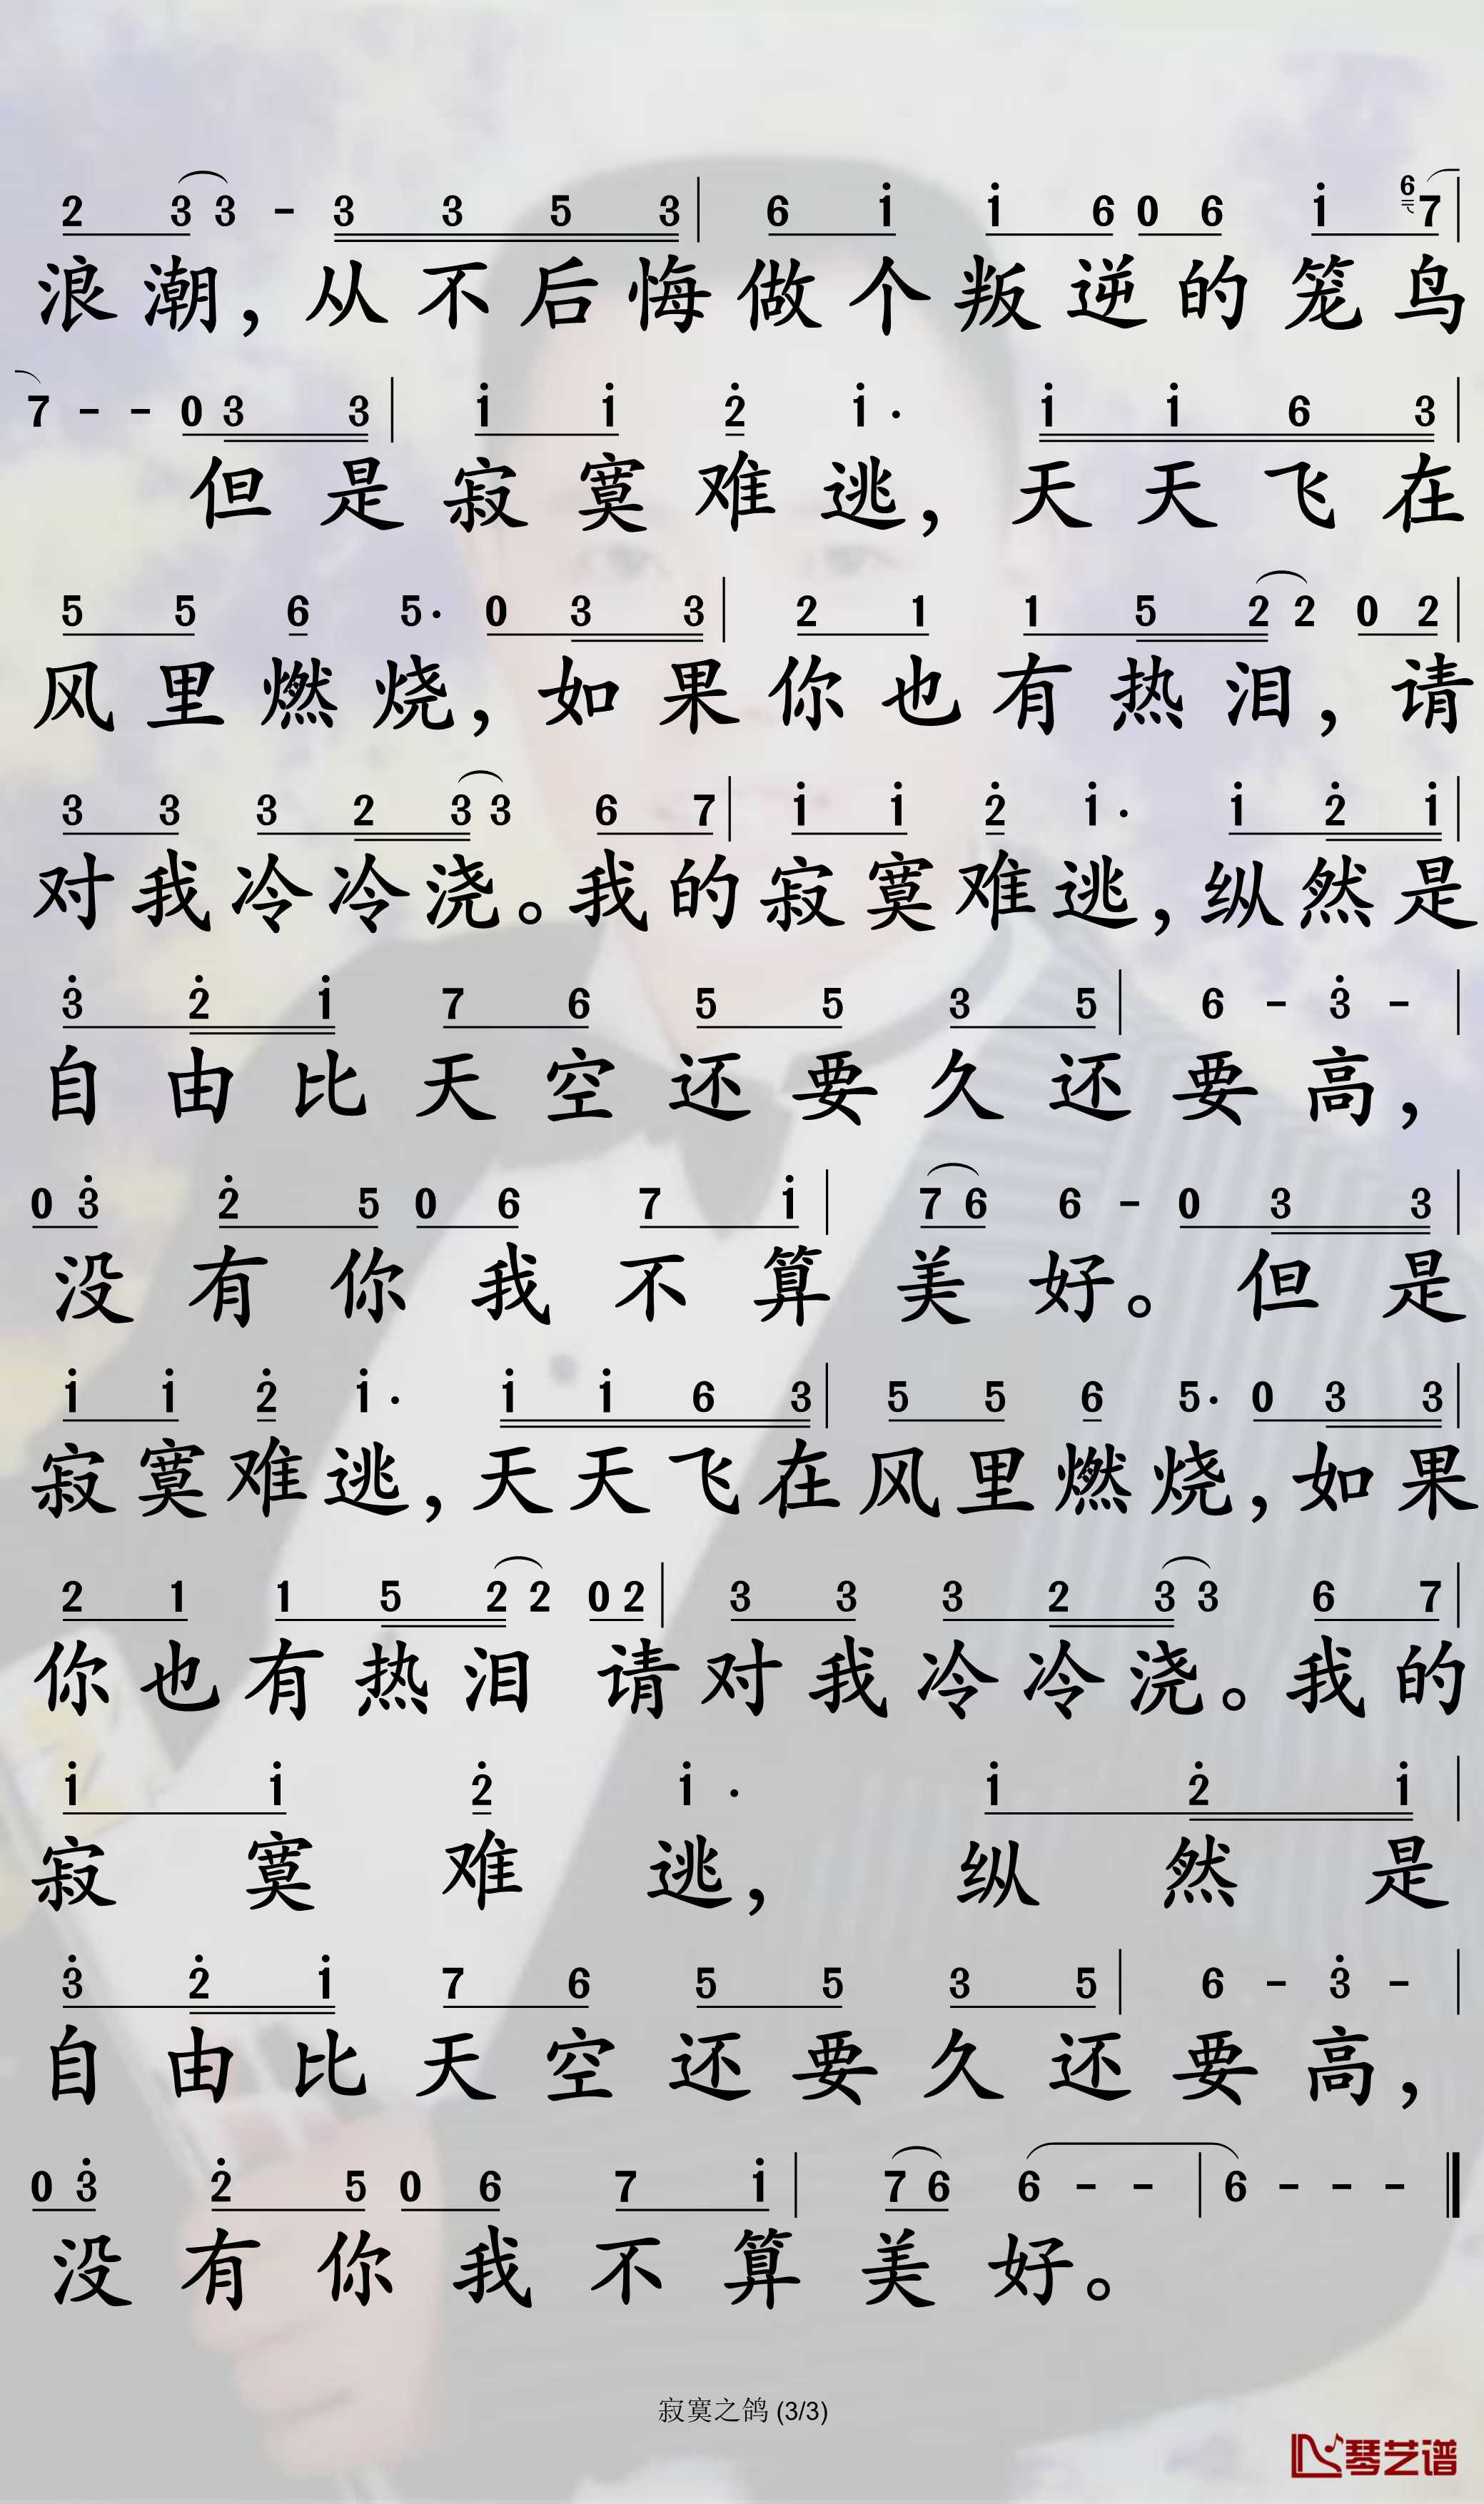 2 3 3 - 3 3 5 3 | 6 i i 6 0 6 i 6 7 |
浪潮，从不后悔做个叛逆的笼鸟
7 - - 0 3 3 | i i 2 i · i i 6 3 |
但是寂寞难逃，天天飞在
5 5 6 5 · 0 3 3 | 2 1 1 5 2 2 0 2 |
风里燃烧，如果你也有热泪，请
3 3 3 2 3 3 6 7 | i i 2 i · i 2 i |
对我冷冷浇。我的寂寞难逃，纵然是
3 2 i 7 6 5 5 3 5 | 6 - 3 - |
自由比天空还要久还要高，
0 3 2 5 0 6 7 i | 7 6 6 - 0 3 3 |
没有你我不算美好。但是
i i 2 i · i i 6 3 | 5 5 6 5 · 0 3 3 |
寂寞难逃，天天飞在风里燃烧，如果
2 1 1 5 2 2 0 2 | 3 3 3 2 3 3 6 7 |
你也有热泪 请对我冷冷浇。我的
i i 2 i · i 2 i |
寂寞难逃，纵然是
3 2 i 7 6 5 5 3 5 | 6 - 3 - |
自由比天空还要久还要高，
0 3 2 5 0 6 7 i | 7 6 6 - - | 6 - - - ‖
没有你我不算美好。
寂寞之鸽 (3/3)
琴艺谱